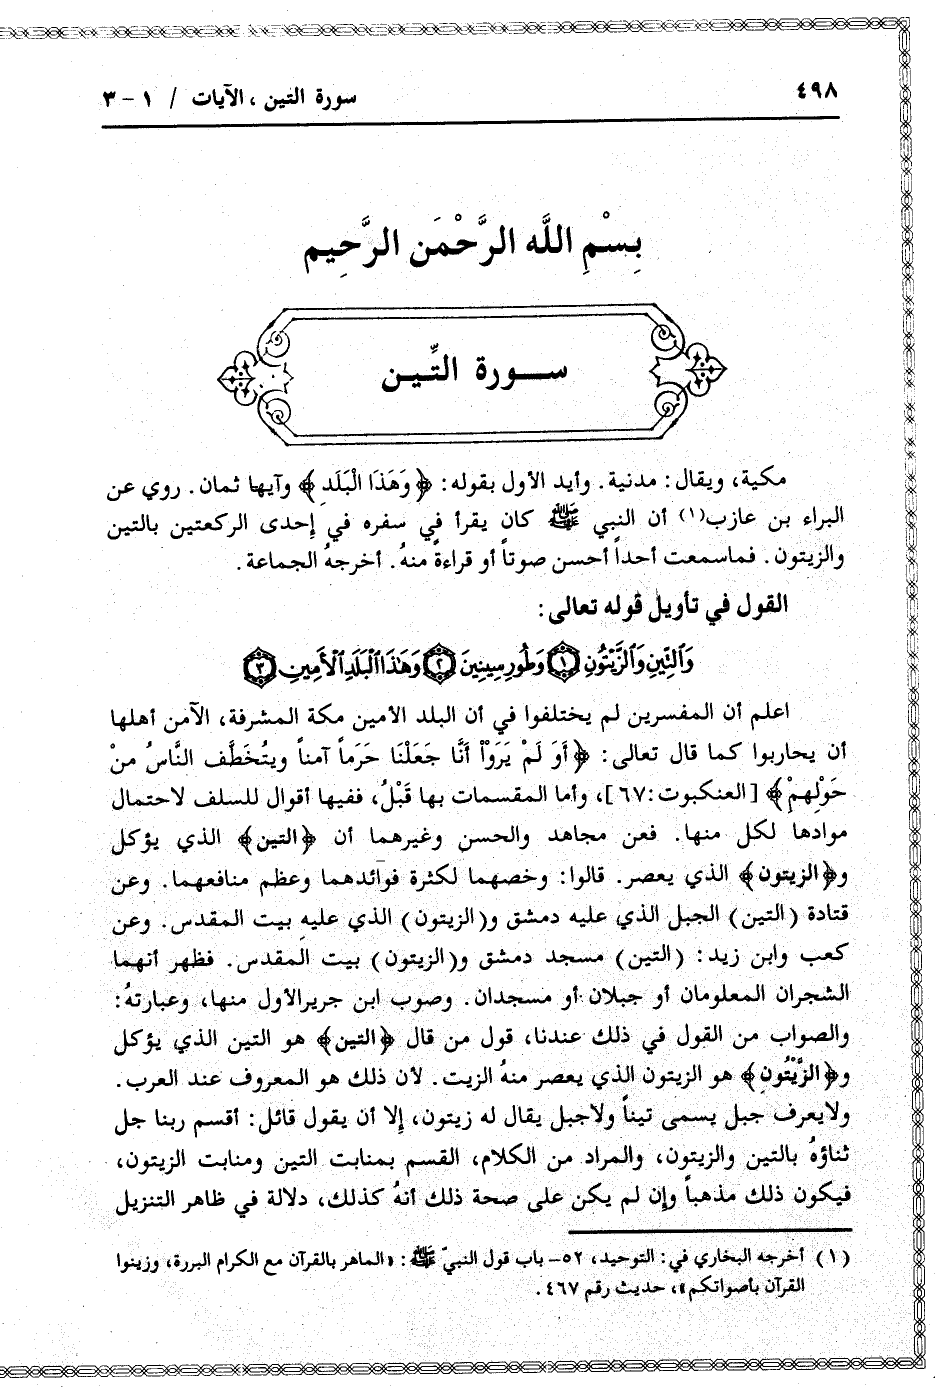 ٤٩٨
سورة التين ، الآيات / ١ – ٣
بِسْمِ اللَّه الرَّحْمَن الرَّحِيم
سورة التِّين
مكية، ويقال: مدنية. وأيد الأول بقوله: ﴿وَهَذَا الْبَلَدِ﴾ وآيها ثمان. روي عن
البراء بن عازب(١) أن النبي ﷺ كان يقرأ في سفره في إحدى الركعتين بالتين
والزيتون. فماسمعت أحداً أحسن صوتاً أو قراءة منهُ. أخرجهُ الجماعة.
القول في تأويل قوله تعالى:
وَٱلتِّينِ وَٱلزَّيْتُونِ ۝١ وَطُورِ سِينِينَ ۝٢ وَهَٰذَا ٱلْبَلَدِ ٱلْأَمِينِ ۝٣
اعلم أن المفسرين لم يختلفوا في أن البلد الأمين مكة المشرفة، الآمن أهلها
أن يحاربوا كما قال تعالى: ﴿أَوَ لَمْ يَرَوْا أَنَّا جَعَلْنَا حَرَماً آمناً ويتُخَطَّف النَّاسُ منْ
حَوْلِهمْ﴾ [العنكبوت:٦٧]، وأما المقسمات بها قَبْلُ، ففيها أقوال للسلف لاحتمال
موادها لكل منها. فعن مجاهد والحسن وغيرهما أن ﴿التين﴾ الذي يؤكل
و﴿الزيتون﴾ الذي يعصر. قالوا: وخصهما لكثرة فوائدهما وعظم منافعهما. وعن
قتادة (التين) الجبل الذي عليه دمشق و(الزيتون) الذي عليه بيت المقدس. وعن
كعب وابن زيد: (التين) مسجد دمشق و(الزيتون) بيت المقدس. فظهر أنهما
الشجران المعلومان أو جبلان أو مسجدان. وصوب ابن جريرالأول منها، وعبارتهُ:
والصواب من القول في ذلك عندنا، قول من قال ﴿التين﴾ هو التين الذي يؤكل
و﴿الزَّيْتُونِ﴾ هو الزيتون الذي يعصر منهُ الزيت. لأن ذلك هو المعروف عند العرب.
ولايعرف جبل يسمى تيناً ولاجبل يقال له زيتون، إلا أن يقول قائل: أقسم ربنا جل
ثناؤهُ بالتين والزيتون، والمراد من الكلام، القسم بمنابت التين ومنابت الزيتون،
فيكون ذلك مذهباً وإن لم يكن على صحة ذلك أنهُ كذلك، دلالة في ظاهر التنزيل
(١) أخرجه البخاري في: التوحيد، ٥٢– باب قول النبيّ ﷺ: «الماهر بالقرآن مع الكرام البررة، وزينوا
القرآن بأصواتكم»، حديث رقم ٤٦٧.